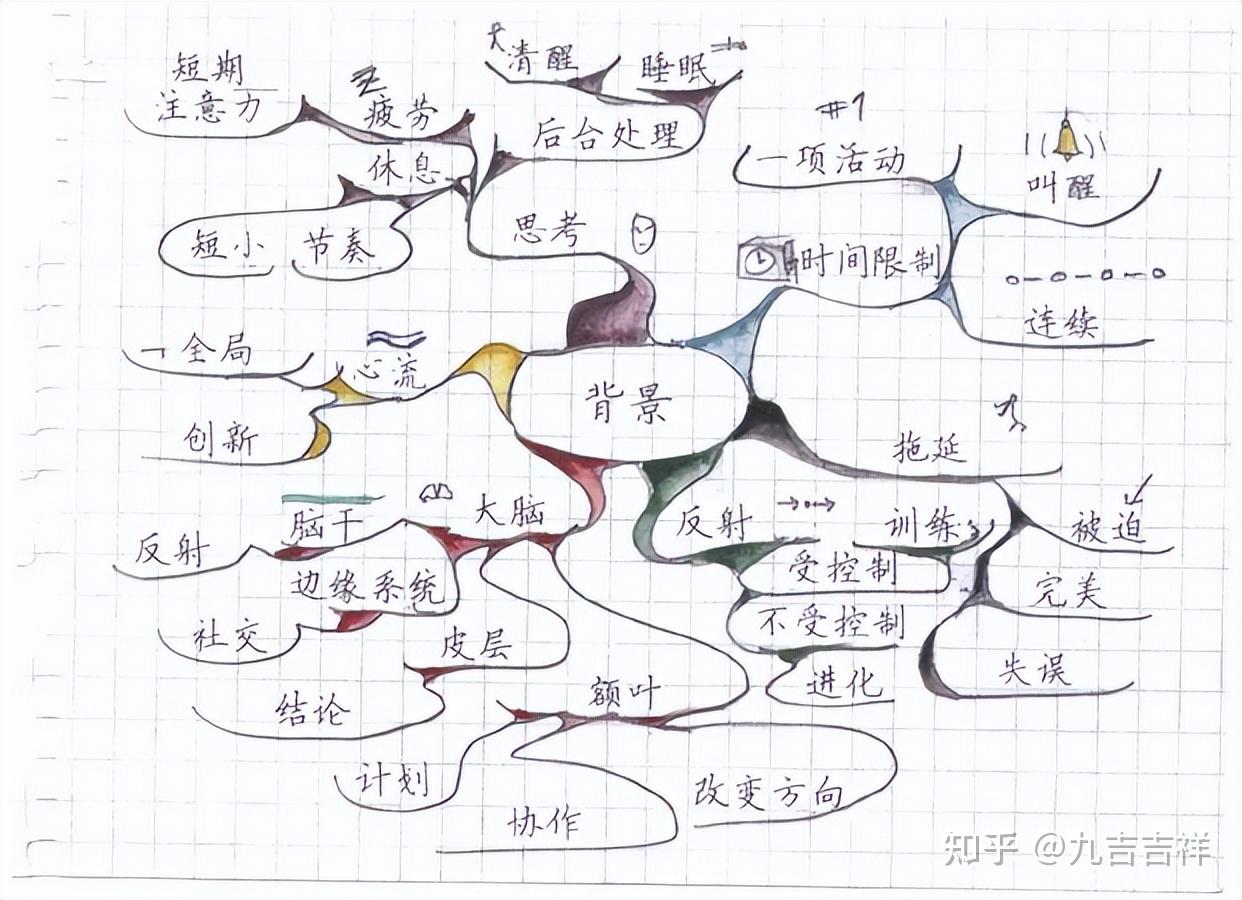 清醒
睡眠
短期
注意力
疲劳
后台处理
#1
一项活动
休息
叫醒
短小
节奏
思考
时间限制
连续
全局
心流
背景
创新
拖延
反射
脑干
大脑
反射
训练
被迫
边缘系统
受控制
完美
社交
皮层
不受控制
失误
结论
额叶
进化
计划
协作
改变方向
知乎 @九吉吉祥